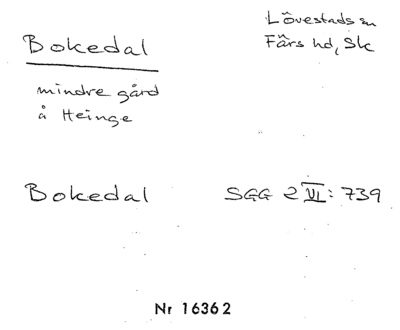 Bokedal
Lövestads sn
Färs hd, Sk
mindre gård
å Heinge
Bokedal SGG 2 VI: 739
Nr 16362